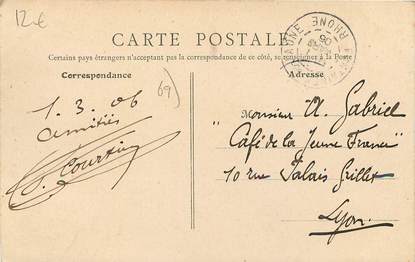 12€
CARTE POSTALE
Certains pays étrangers n'acceptant pas la correspondance de ce côté, se renseigner à la Poste
Correspondance
Adresse
RHONE
1.3.06
69
amitiés
Courtin
Monsieur A. Gabriel
"Café de la Jeune France"
10 rue Palais Grillet
Lyon.